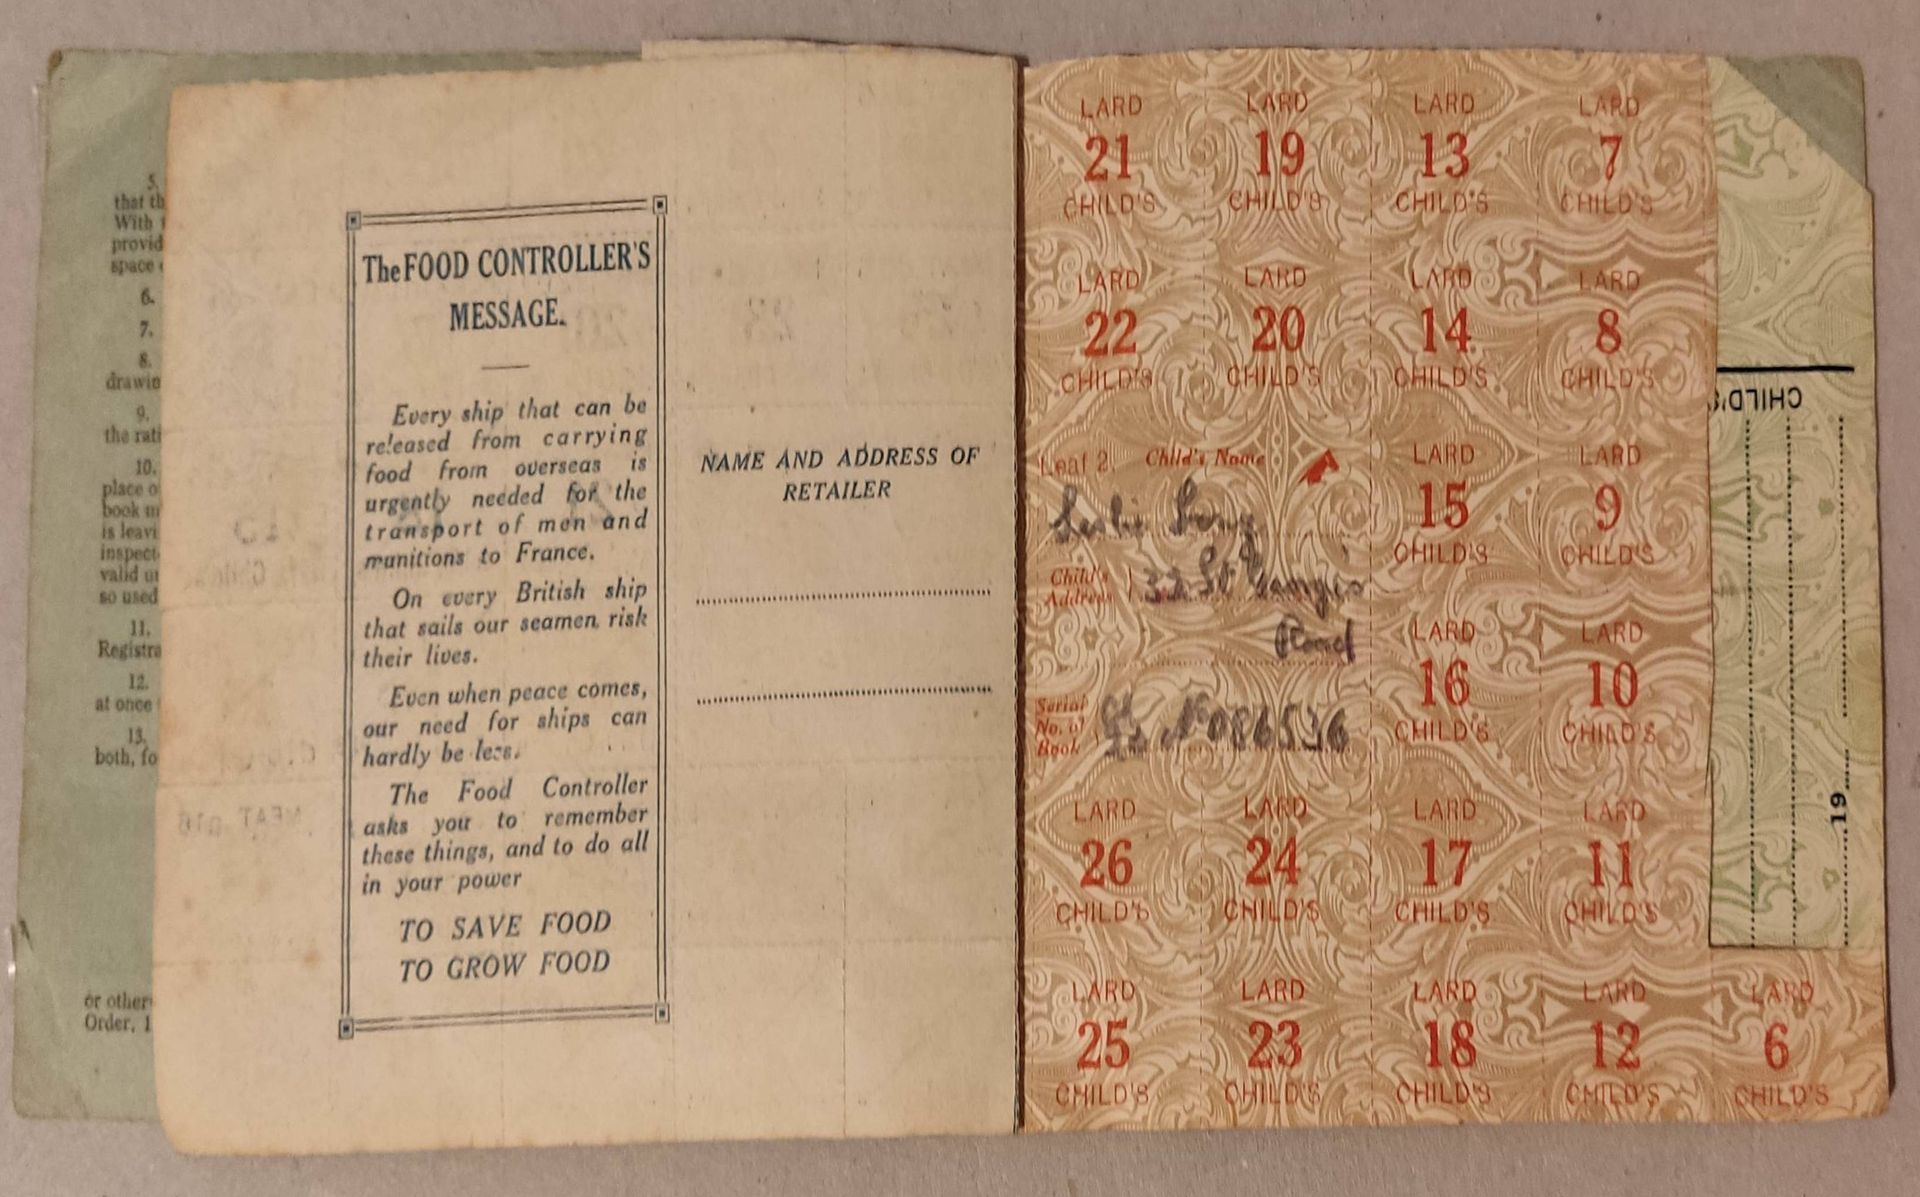 5.
that th
With
provid
space
6.
7.
8.
drawin
9.
the rati
10.
place o
book m
is leavi
inspect
valid u
so used
11.
Registra
12.
at once
13.
both, fo
or other
Order, 1
The FOOD CONTROLLER'S
MESSAGE.
Every ship that can be
released from carrying
food from overseas is
urgently needed for the
transport of men and
munitions to France.
On every British ship
that sails our seamen risk
their lives.
Even when peace comes,
our need for ships can
hardly be less.
The Food Controller
asks you to remember
these things, and to do all
in your power
TO SAVE FOOD
TO GROW FOOD
NAME AND ADDRESS OF
RETAILER
LARD LARD LARD LARD
21 19 13 7
CHILD'S CHILD'S CHILD'S CHILD'S
LARD LARD LARD LARD
22 20 14 8
CHILD'S CHILD'S CHILD'S CHILD'S
Leaf 2. Child's Name
Leslie Long
Child's Address 32 St Georges
Road
Serial No. of Book No 086536
LARD LARD
15 9
CHILD'S CHILD'S
LARD LARD
16 10
CHILD'S CHILD'S
LARD LARD LARD LARD
26 24 17 11
CHILD'S CHILD'S CHILD'S CHILD'S
LARD LARD LARD LARD LARD
25 23 18 12 6
CHILD'S CHILD'S CHILD'S CHILD'S CHILD'S
CHILD'S
19